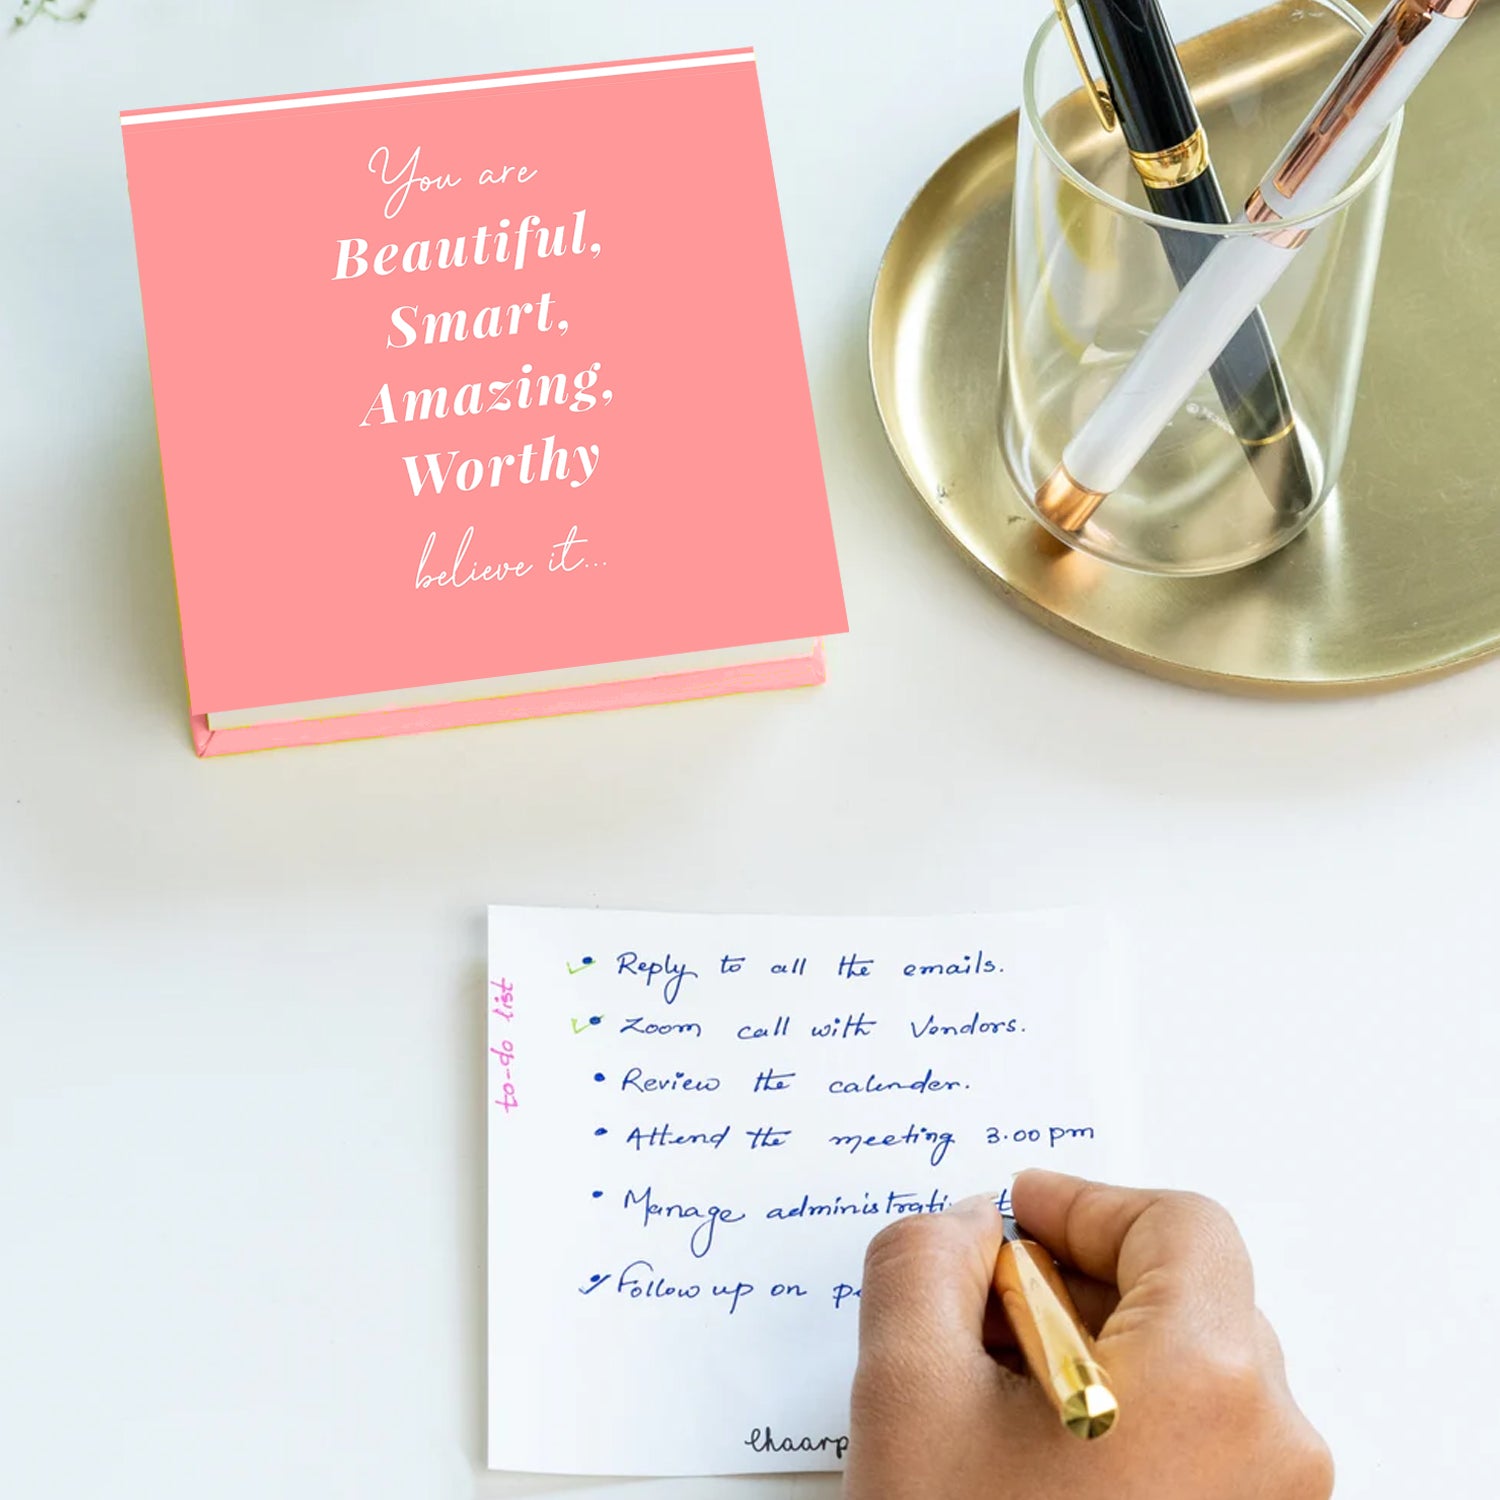 You are
Beautiful,
Smart,
Amazing,
Worthy
believe it...
to-do list
Reply to all the emails.
Zoom call with Vendors.
Review the calender.
Attend the meeting 3.00 pm
Manage
Follow up on